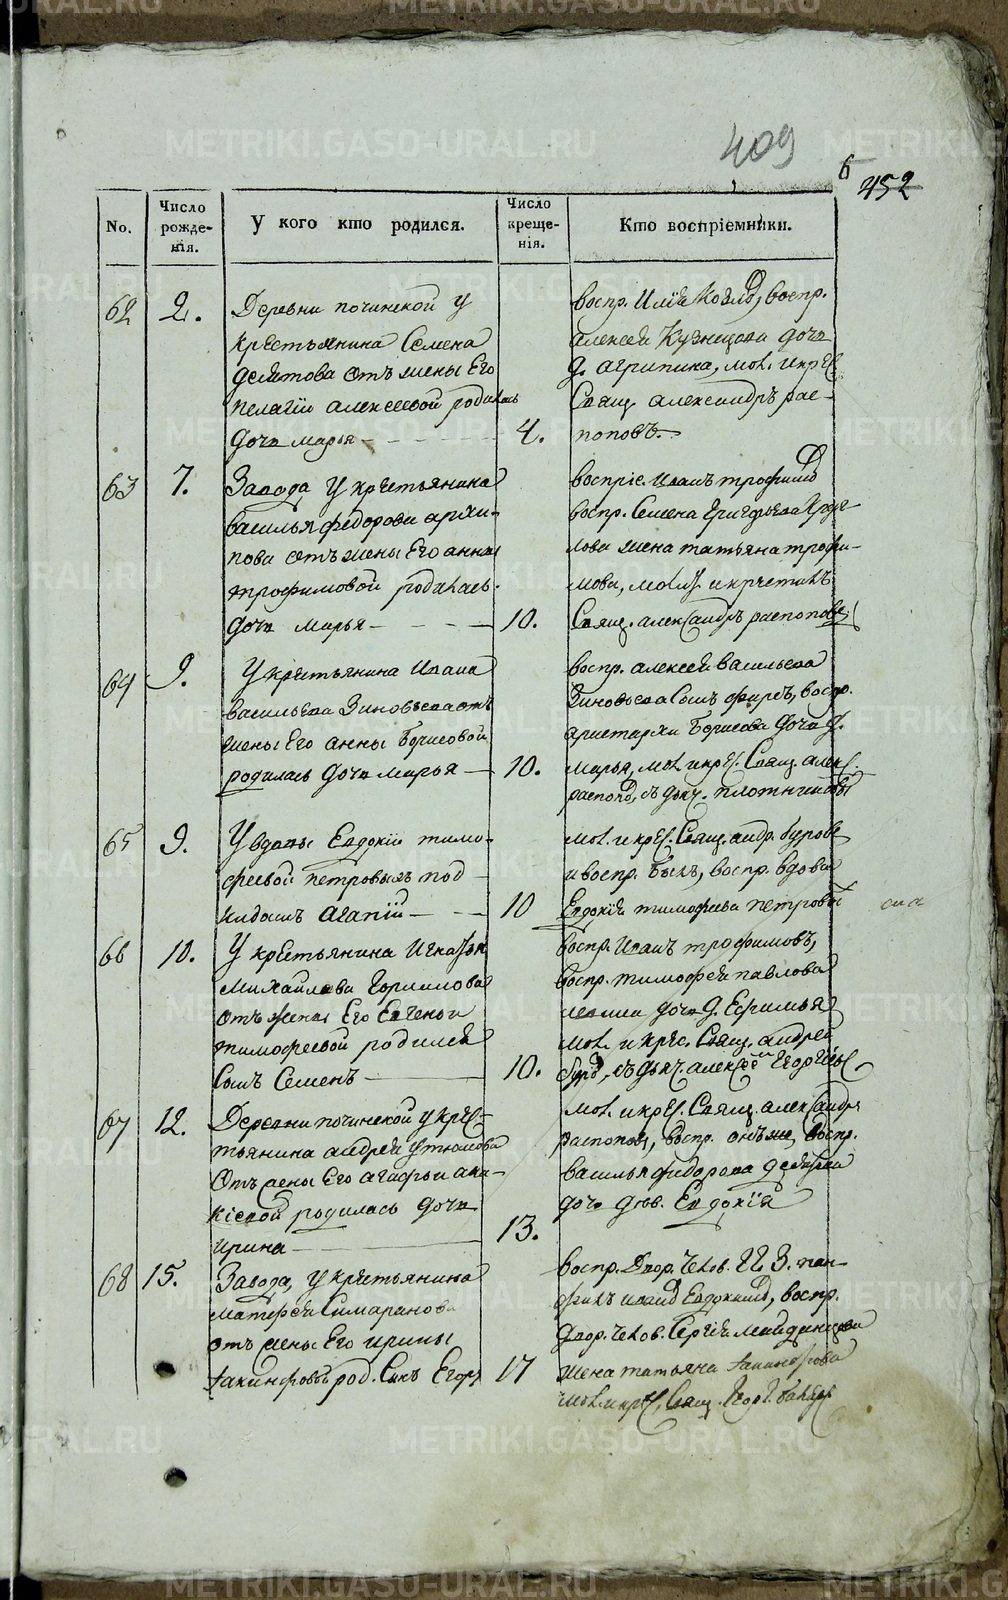 409
6
452
No.
Число рожде-нія.
У кого кто родился.
Число креще-нія.
Кто воспріемники.
62 2. Деревни починской у
крестьянина Семена
отъ жены Его
пелагіи алексеевой родилась
дочь марья 4.
воспр. Илія воспр.
алексея Кузнецова дочь
д. агрипина, мол. и крес.
Свящ. александръ рас-
поповъ.
63 7. Завода, у крестьянина
василья федорова архи-
пова отъ жены Его анны
трофимовой родилась
дочь марья 10.
воспріе. Иванъ трофимов
воспр. Семена Григорьева
лова жена татьяна трофи-
мова, молит. и крестилъ
Свящ. александръ распопов
64 9. У крестьянина Ивана
васильева Зиновьева отъ
жены Его анны борисовой
родилась дочь марья 10.
воспр. алексей васильева
Зиновьева сынъ воспр.
аристарха борисова дочь д.
марья, мол. и крес. Свящ. алекс.
распопов, съ дьяч. плотниковы
65 9. У вдовы Евдокіи тимо-
феевой петровыхъ под
кидышъ агапій 10
мол. и крес. Свящ. андр.
и воспр. былъ, воспр. вдова
Евдокія тимофеева петрова
66 10. У крестьянина Игнатья
Михайлова Горшкова
отъ жены Его Евгеньи
тимофеевой родился
сынъ Семенъ 10.
воспр. Иванъ трофимовъ,
воспр. тимофея павлова
дочь д. Ефимья
мол. и крес. Свящ. андрей
съ дьяч. алексее
67 12. Деревни починской у крес-
тьянина андрея
отъ жены Его агафьи
родилась дочь
ирина 13.
мол. и крес. Свящ. александр
распопов, воспр. онъ же, воспр.
василья федорова
дочь дев. Евдокія
68 15. Завода, у крестьянина
матфея Симаранова
отъ жены Его ирины
род. сынъ Егоръ 17
воспр. Двор. челов. П. З.
иванъ Евдокимов, воспр.
двор. челов. Сергея
жена татьяна
мол. и крес. Свящ.
METRIKI.GASO-URAL.RU